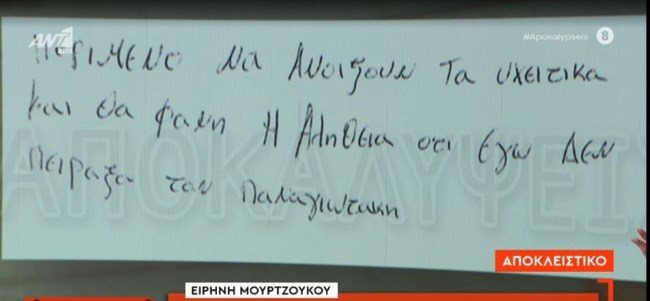 ANT1
#Apokalypseis
8
Περιμενο να Ανοιξουν Τα υχειτικα
και θα φανη Η Αληθεια οτι εγω Δεν
Πειραξα τον Παναγιωτακη
ΑΠΟΚΑΛΥΨΕΙΣ
ΑΠΟΚΛΕΙΣΤΙΚΟ
ΕΙΡΗΝΗ ΜΟΥΡΤΖΟΥΚΟΥ